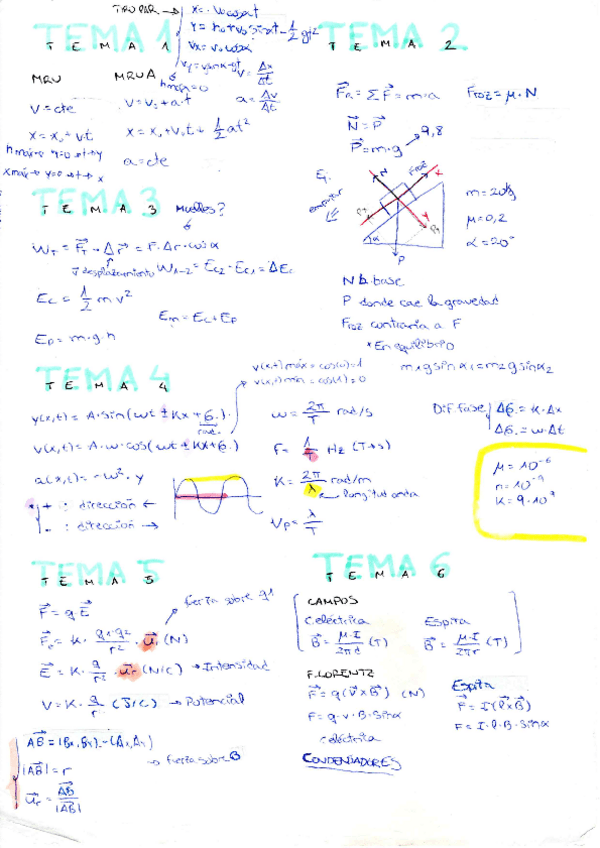 TIRO PAR →
x = v₀cosα t
y = h₀ + v₀ sinα t - 1/2 gt²
Vx = v₀ cosα
TEMA 1
hmax = 0
v = Δx/Δt
a = Δv/Δt
MRU
MRUA
v = cte
v = v₀ + a·t
x = x₀ + v·t
x = x₀ + v₀t + 1/2 at²
a = cte
TEMA 2
F⃗R = ΣF⃗ = m·a
FROZ = μ·N
N⃗ = P⃗
P⃗ = m·g
9,8
Ej.
empujar
N
FROZ
x
Y
P
α
m = 20kg
μ = 0,2
α = 20°
N ⊥ base
P donde cae la gravedad
FROZ contraria a F
*En equilibrio
m₁g sinα₁ = m₂g sinα₂
TEMA 3
Muelles?
WT = F⃗T · Δr⃗ = F·Δr·cosα
desplazamiento
W1-2 = Ec2 - Ec1 = ΔEc
Ec = 1/2 m v²
Em = Ec + Ep
Ep = m·g·h
TEMA 4
v(x,t) máx = cos(0) = 1
v(x,t) mín = cos(1) = 0
y(x,t) = A·sin(wt ± Kx + δ₀)
rad.
v(x,t) = A·w·cos(wt ± Kx + δ₀)
a(x,t) = -w²·y
+ : dirección ←
- : dirección →
w = 2π/T rad/s
F = 1/T Hz (T→s)
K = 2π/λ rad/m
longitud onda
Vp = λ/T
Dif fase
Δδ₀ = K·Δx
Δδ₀ = w·Δt
μ = 10⁻⁶
n = 10⁻⁹
K = 9·10⁹
TEMA 5
F⃗ = q·E⃗
fuerza sobre q1
F⃗e = K· q1·q2/r² · u⃗r (N)
E⃗ = K· q/r² · u⃗r (N/C) → Intensidad
V = K· q/r (J/C) → Potencial
AB⃗ = (Bx, By) - (Ax, Ay)
→ fuerza sobre B
|AB⃗| = r
u⃗r = AB⃗/|AB⃗|
TEMA 6
CAMPOS
C.eléctrica
Espira
B⃗ = μ·I/2πd (T)
B⃗ = μ·I/2πr (T)
F. LORENTZ
F⃗ = q(v⃗×B⃗) (N)
F = q·v·B·sinα
c.eléctrica
Espira
F⃗ = I(l⃗×B⃗)
F = I·l·B·sinα
CONDENSADORES